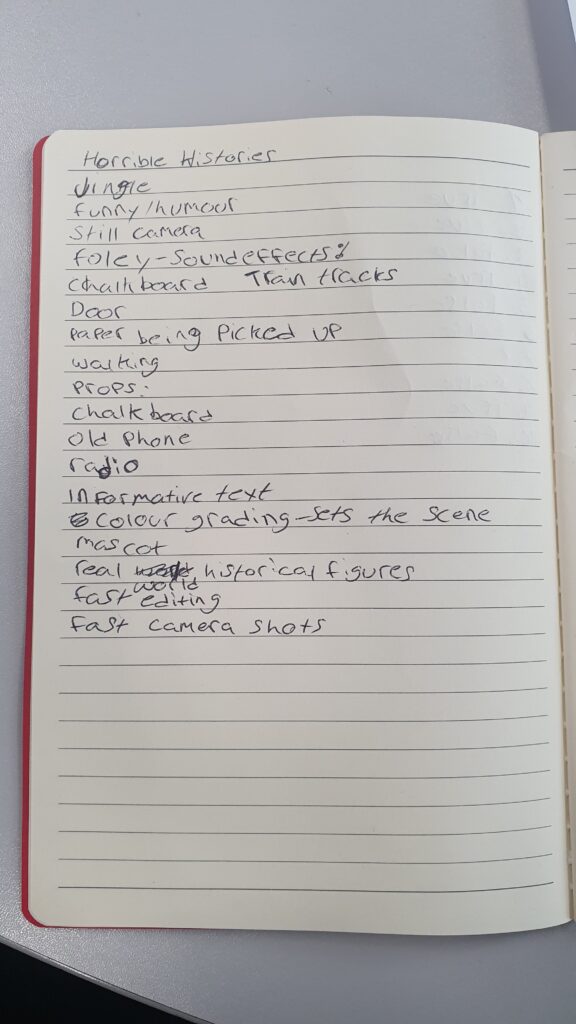 Horrible Histories
Jingle
funny/humour
Still camera
foley-Soundeffects:
Chalkboard Train tracks
Door
Paper being Picked up
walking
Props:
Chalkboard
Old Phone
radio
Informative text
Colour grading-sets the scene
mascot
real world historical figures
fast editing
Fast camera shots